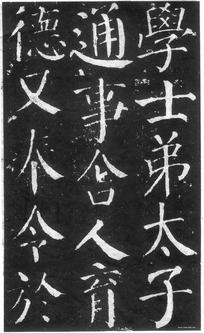 學士弟太子
通事舍人育
德又奉令於